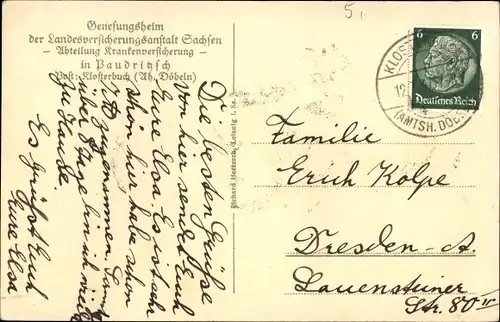 5.
Genesungsheim
der Landesversicherungsanstalt Sachsen
– Abteilung Krankenversicherung –
in Paudritzsch
Post: Klosterbuch (Ah. Döbeln)
Die besten Grüße
von hier sendet Euch
Eure Elsa. Es ist sehr
schön hier habe schon
zugenommen.
über 8 Tage bin ich wieder
zu Hause.
Es grüßt Euch
Eure Elsa
Richard Hertzsch, Leipzig i. Sa.
6 6
Deutsches Reich
KLOS
12
(AMTSH. DÖBEL
Familie
Erich Kolpe
Dresden-A.
Lauensteiner
Str. 80 II